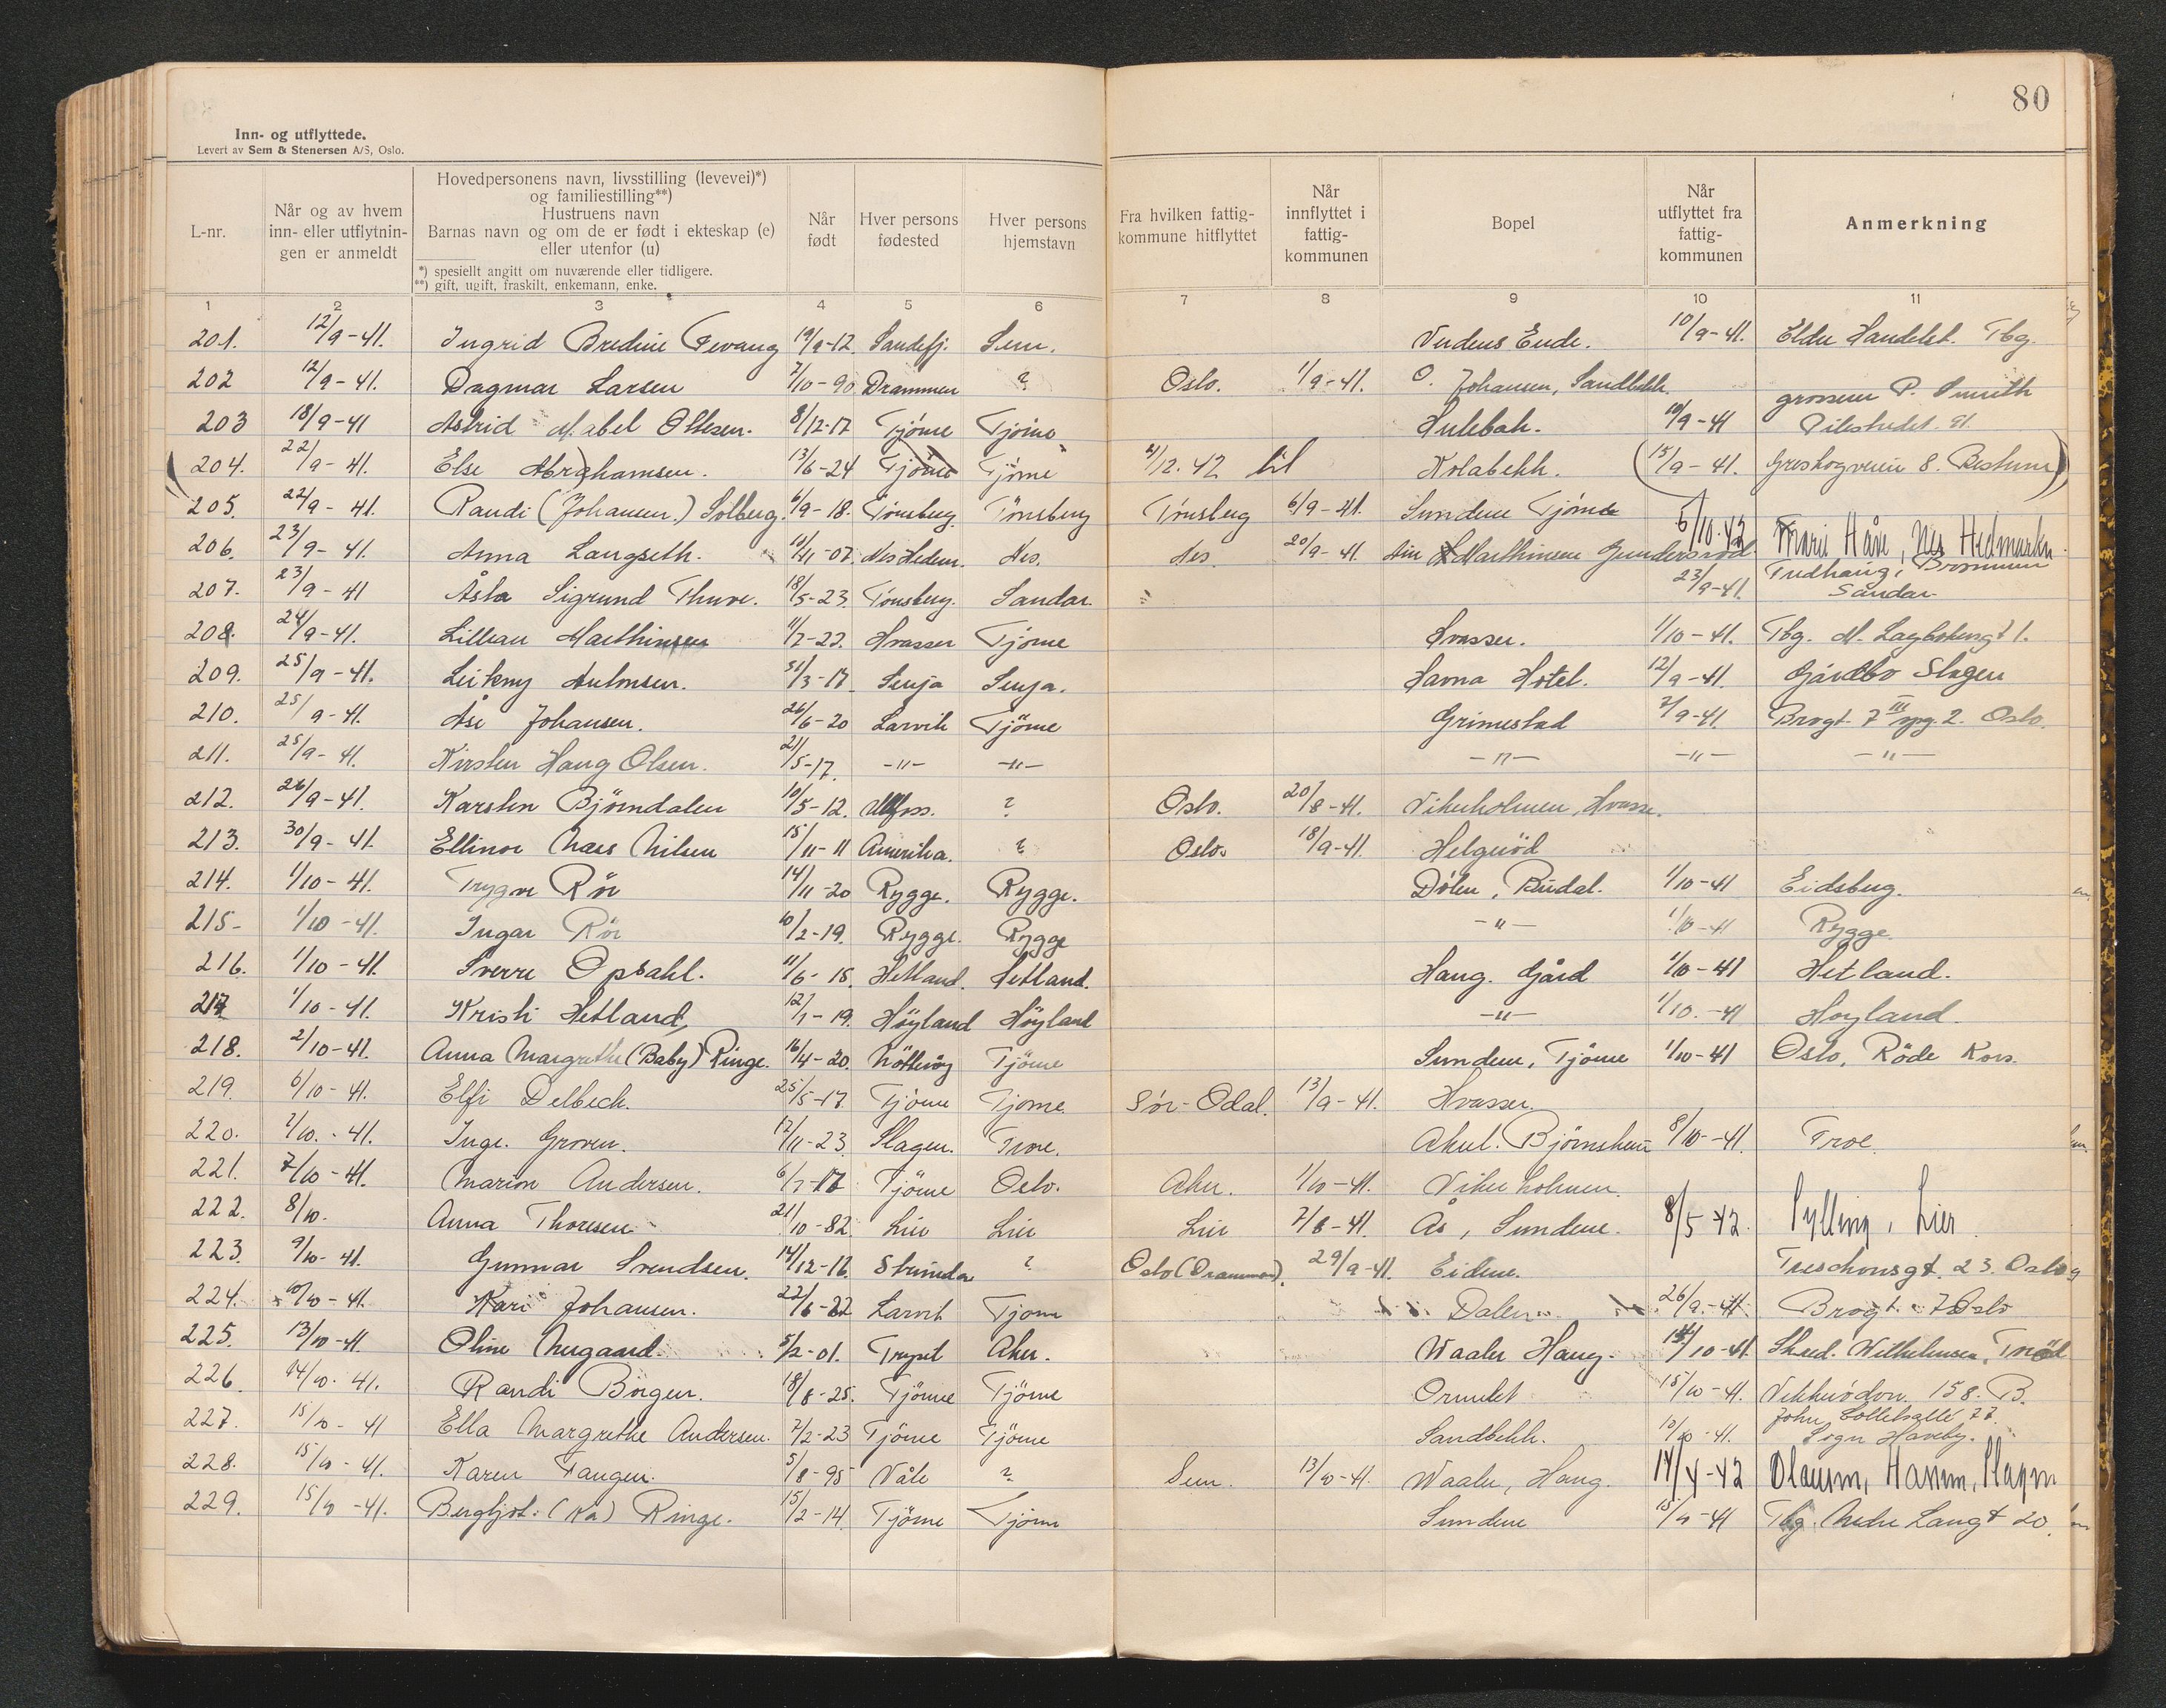 80
Inn- og utflyttede.
Levert av Sem & Stenersen A/S, Oslo.
L-nr. | Når og av hvem inn- eller utflytnin-gen er anmeldt | Hovedpersonens navn, livsstilling (levevei)*) og familiestilling**) Hustruens navn Barnas navn og om de er født i ekteskap (e) eller utenfor (u) *) spesiellt angitt om nuværende eller tidligere. **) gift, ugift, fraskilt, enkemann, enke. | Når født | Hver persons fødested | Hver persons hjemstavn | Fra hvilken fattig-kommune hitflyttet | Når innflyttet i fattig-kommunen | Bopel | Når utflyttet fra fattig-kommunen | Anmerkning
1 2 3 4 5 6 7 8 9 10 11
201. 12/9-41. Ingrid Bredine Fevang 19/9-12. Sandefj. Sem. Verdens Ende. 10/9-41. Tbg.
202 12/9-41. Dagmar Larsen 7/10-90. Drammen ? Oslo. 1/9-41. O. Johansen, Sandbekk.
203 18/9-41 Astrid Mabel Ottesen. 8/12-17 Tjöme Tjöme Hulebak. 10/9-41 grosserer P. Smith Pilestredet
(204. 22/9-41. Else Abrahamsen. 13/6-24 Tjöme Tjöme 4/12.42 til Kolabekk. (15/9-41. Greskogveien 8. Bestum)
205. 22/9-41. Randi (Johansen.) Solberg. 6/9-18. Tönsberg. Tönsberg Tönsberg 6/9-41. Sundene Tjöme
206. 23/9-41. Anna Langseth. Nes Hedem. Nes. Nes. 20/9-41. Marthinsen Gundersröd. 5/10.42 Marie Håve, Nes Hedmarken.
207. 23/9-41 Åsta Sigrund Thuve. 18/5-23. Tönsberg. Sandar. 23/9-41. Sandar.
208. 24/9-41. Lillian Marthinsen 11/7-22. Hvasser Tjöme Hvasser. 1/10-41. Tbg.
209. 25/9-41. Leikny Antonsen. 31/3-17. Senja Senja. Havna Hotel. 12/9-41. Gårdbo Slagen
210. 25/9-41. Åse Johansen. 26/6-20 Larvik Tjöme Grimestad 2/9-41. Brogt. 7 III opg. 2. Oslo.
211. 25/9-41. Kirsten Haug Olsen. 21/5-17. -"- -"- -"- -"- -"-
212. 26/9-41. Karsten Björndalen 10/5-12. Ulefoss. ? Oslo. 20/8-41. Vikerholmen, Hvasser.
213. 30/9-41. Ellinor Næss Nilsen 15/11-11 Amerika. ? Oslo. 18/9-41. Helgeröd
214. 1/10-41. Trygve Rör 14/11-20 Rygge. Rygge. Dölen, Budal. 1/10-41 Eidsberg.
215- 1/10-41. Ingar Rör 10/2-19. Rygge. Rygge -"- 1/10-41 Rygge.
216. 1/10-41. Sverre Opsahl. 11/6-18. Hetland. Hetland. Haug. Gård 1/10-41 Hetland.
217 1/10-41. Kristi Hetland, 12/1-19. Höyland Höyland -"- 1/10.-41 Höyland.
218. 2/10-41. Anna Margrethe (Baby) Ringe. 16/4-20. Nötteröy Tjöme Sundene, Tjöme 1/10-41 Oslo, Röde Kors.
219. 6/10-41. Elfi Delbeck. 25/5-17. Tjöme Tjöme. Sör-Odal. 13/9-41. Hvasser.
220. 7/10.-41. Inge. Groven. 12/11-23. Slagen. Troe. Björnskau 8/10-41. Troe.
221. 7/10-41. Marion Andersen. 6/7-17 Tjöme Oslo. Aker. 1/10-41. Vikerholmen.
222. 8/10. Anna Thoresen. 21/10-82. Lier Lier Lier 7/8-41. Ås, Sundene. 8/5-42. Sylling, Lier.
223. 9/10-41. Gunnar Svendsen. 14/12-16. Strinda ? Oslo (Drammen). 29/9-41. Eidene. Treschowsgt. 23. Oslo
224. 10/10-41. Kari Johansen. 22/6-22 Larvik Tjöme Dalen 26/9.-41. Brogt. 7 Oslo
225. 13/10-41. Oline Nygaard. 5/2-01. Trysil Aker. Waaler Haug. 14/10-41. Skred. Wilhelmsen,
226. 14/10-41. Randi Börgen. 18/8-25. Tjöme Tjöme Ormelet 15/10-41. 158. B.
227. 15/10-41 Ella Margrethe Andersen. 7/2-23 Tjöme Tjöme Sandbekk. 10/10-41. John Colletsallé 77. Sogn Haveby.
228. 15/10-41. Karen Fangen. 5/8-95 Våle ? Sem. 13/10-41. Waaler, Haug. 14/4-42 Olausen, Slagen
229. 15/10-41. Bergljot. (Ka) Ringe. 15/2-14. Tjöme Tjöme Sundene 15/10-41 Tbg. Nedre Langgt 20.